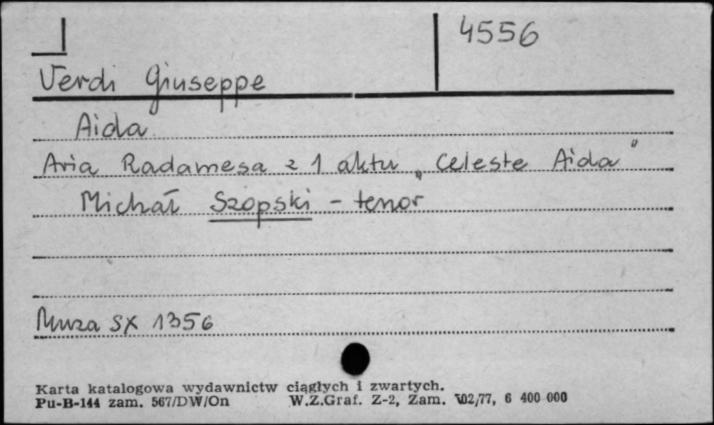 4556
Verdi Giuseppe
Aida
Aria Radamesa z 1 aktu „Celeste Aida"
Michał Szopski - tenor
Muza SX 1356
Karta katalogowa wydawnictw ciągłych i zwartych.
Pu-B-144 zam. 567/DW/On W.Z.Graf. Z-2, Zam. 702/77, 6 400 000